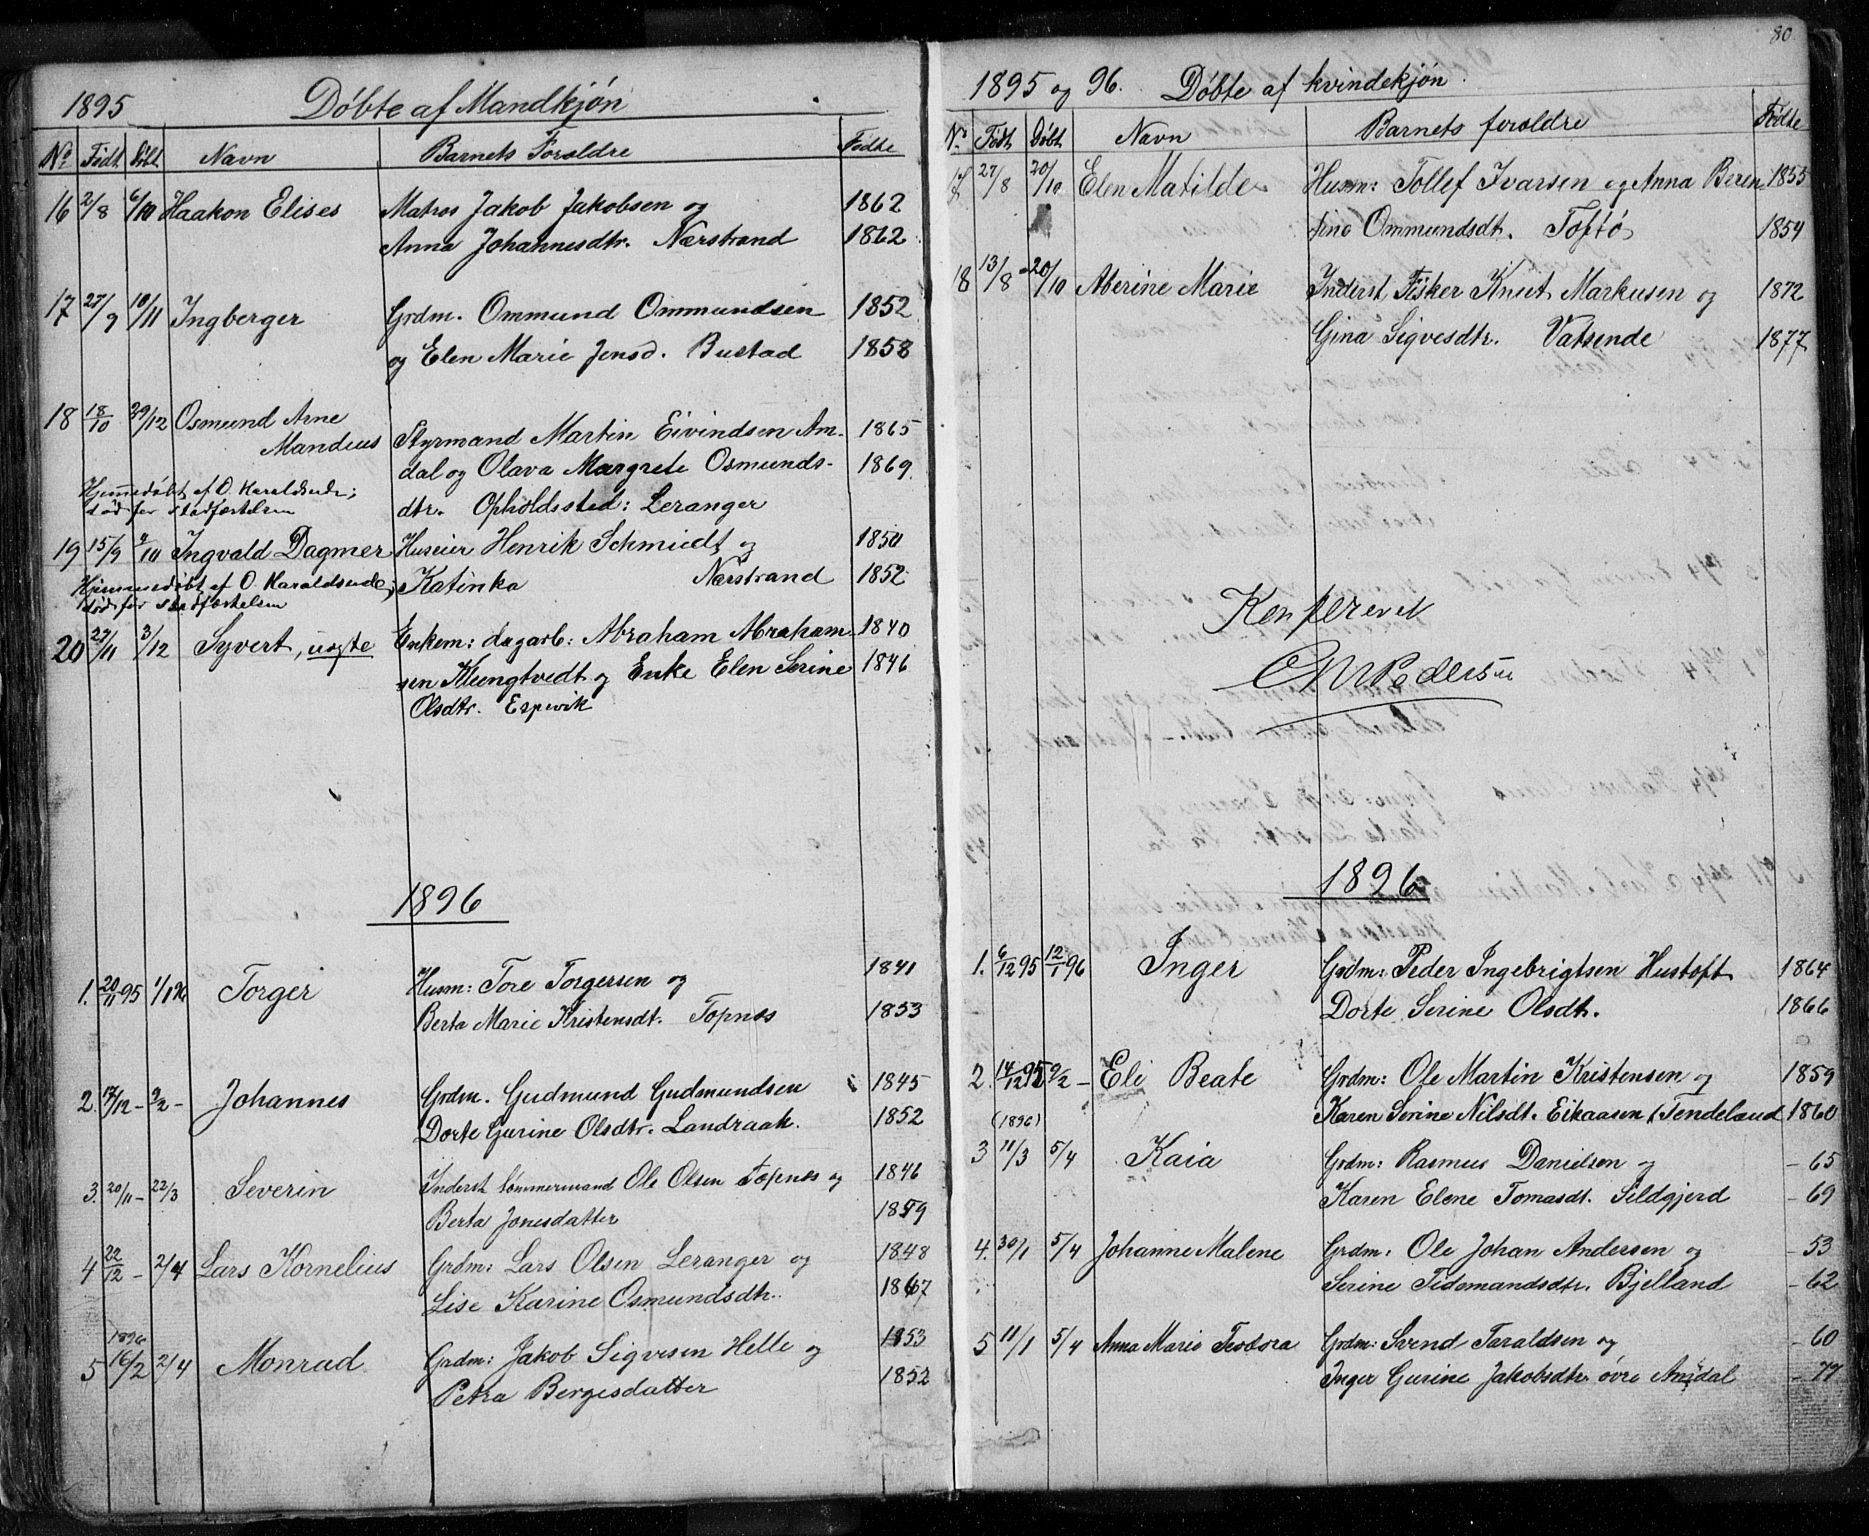 1895 Døbte af Mandkjøn
No Født Døbt Navn Barnets Foroldre Fødte
16 2/8 6/10 Haakon Elises Matros Jakob Jakobsen og 1862
Anna Johannesdtr. Nærstrand 1862
17 27/9 10/11 Ingberger Grdm. Ommund Ommundsen 1852
og Elen Marie Jensd. Bustad 1858
18 18/10 29/12 Osmund Arne
Mandius Styrmand Martin Eivindsen Am- 1865
dal og Olava Margrete Osmunds- 1869
Hjemmedøbt af O. Haraldseide;
død før stadfæstelsen
dtr. Opholdssted: Leranger
19 15/9 /10 Ingvald Dagmer Huseier Henrik Schmidt og 1850
Hjemmedøbt af O. Haraldseide;
død før stadfæstelsen
Katinka Nærstrand 1852
20 27/11 3/12 Syvert, uægte Enkem: dagarb: Abraham Abraham- 1840
sen Klungtvedt og Enke Elen Serine 1846
Olsdtr. Espevik
1896
1. 20/11 95 1/1 96 Torger Husm: Tore Torgersen og 1841
Berta Marie Kristensdt. Topnes 1853
2. 17/12 – 9/2 – Johannes Grdm. Gudmund Gudmundsen 1845
Dorte Gurine Olsdtr. Landraak. 1852
3. 20/11 – 22/3 Severin Inderst tømmermand Ole Olsen Topnes og 1846
Berta Jonesdatter 1859
4 22/12 – 2/4 Lars Kornelius Grdm: Lars Olsen Leranger og 1848
Lise Karine Osmundsdtr. 1867
1896
5 16/2 2/4 Monrad Grdm: Jakob Sigvesen Helle og 1853
Petra Bergesdatter 1852
80
1895 og 96. Døbte af kvindekjøn.
No Født Døbt Navn Barnets foroldre Fødte
17 27/8 20/10 Elen Matilde Husm: Tollef Ivarsen og Anna Beren 1853
tine Ommundsdt. Toftø 1854
18 13/8 20/10 Aberine Marie Inderst Fisker Knut Markusen og 1872
Gina Sigvesdtr. Vatsende 1877
Konfereret
Pedersen
1896
1. 6/12 95 12/1 96 Inger Grdm: Peder Ingebrigtsen Hustoft 1864
Dorte Serine Olsdtr. 1866
2. 14/12 95 9/2 – Eli Beate Grdm: Ole Martin Kristensen og 1859
Karen Serine Nilsdt. Eikaasen (Tendeland 1860
(1896)
3 11/3 5/4 Kaia Grdm: Rasmus Danielsen og – 65
Karen Elene Tomasdt. Sildgjerd – 69
4. 30/1 5/4 Johanne Malene Grdm: Ole Johan Andersen og – 53
Serine Tidemandsdtr. Bjelland – 62
5 11/1 5/4 Anna Marie Teodora Grdm: Svend Taraldsen og – 60
Inger Gurine Jakobsdtr øvre Amdal – 77